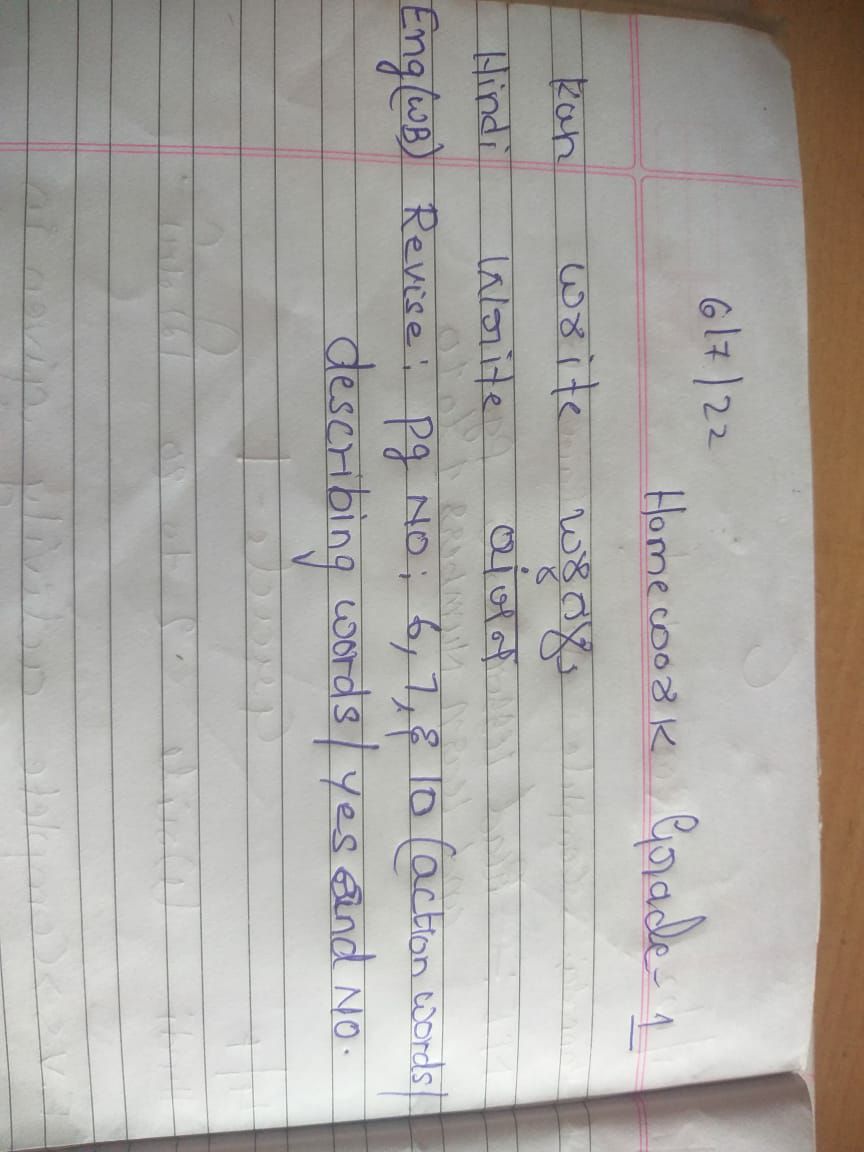 6/7/22
Homework Grade-1
Kan write
Hindi Write
Eng(WB) Revise: Pg No: 6, 7, & 10 (action words/
describing words/ yes and No.